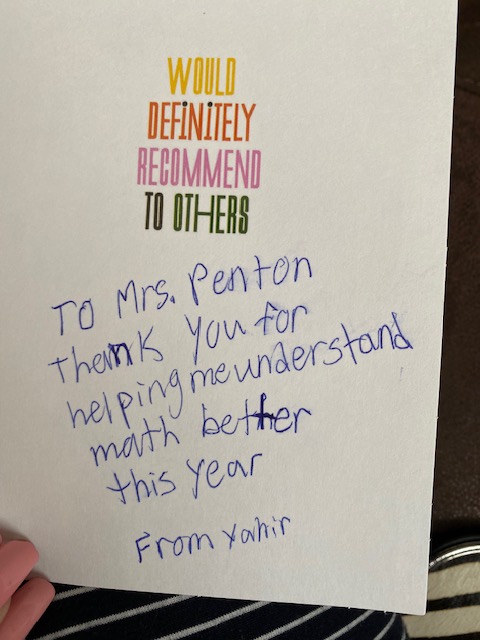 WOULD
DEFiNiTELY
RECOMMEND
TO OTHERS
To Mrs. Penton
thank you for
helping me understand
math better
this year
From Yahir